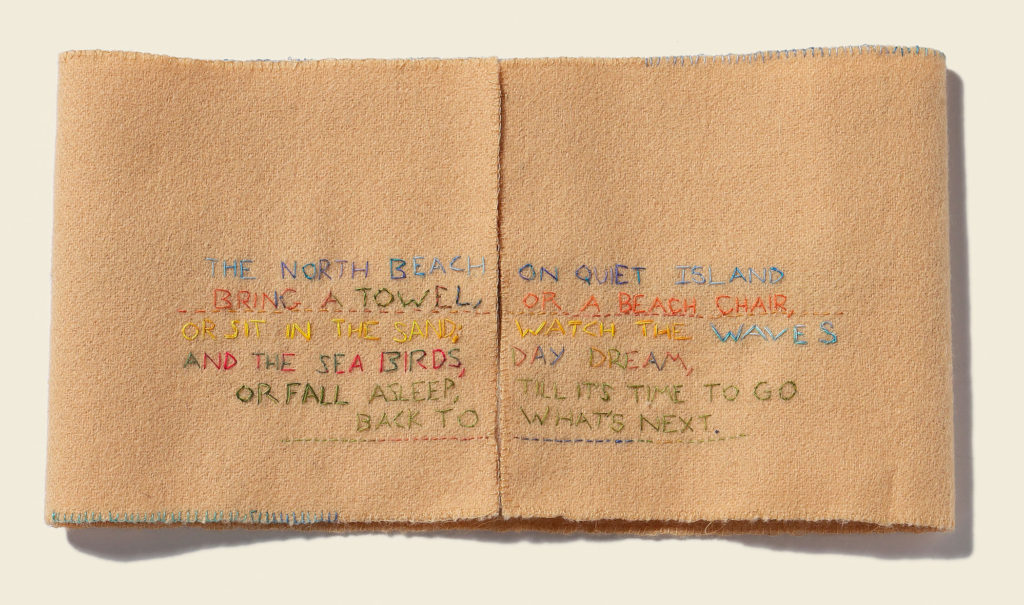 THE NORTH BEACH ON QUIET ISLAND
BRING A TOWEL, OR A BEACH CHAIR,
OR SIT IN THE SAND; WATCH THE WAVES
AND THE SEA BIRDS, DAY DREAM,
OR FALL ASLEEP, TILL IT'S TIME TO GO
BACK TO WHAT'S NEXT.